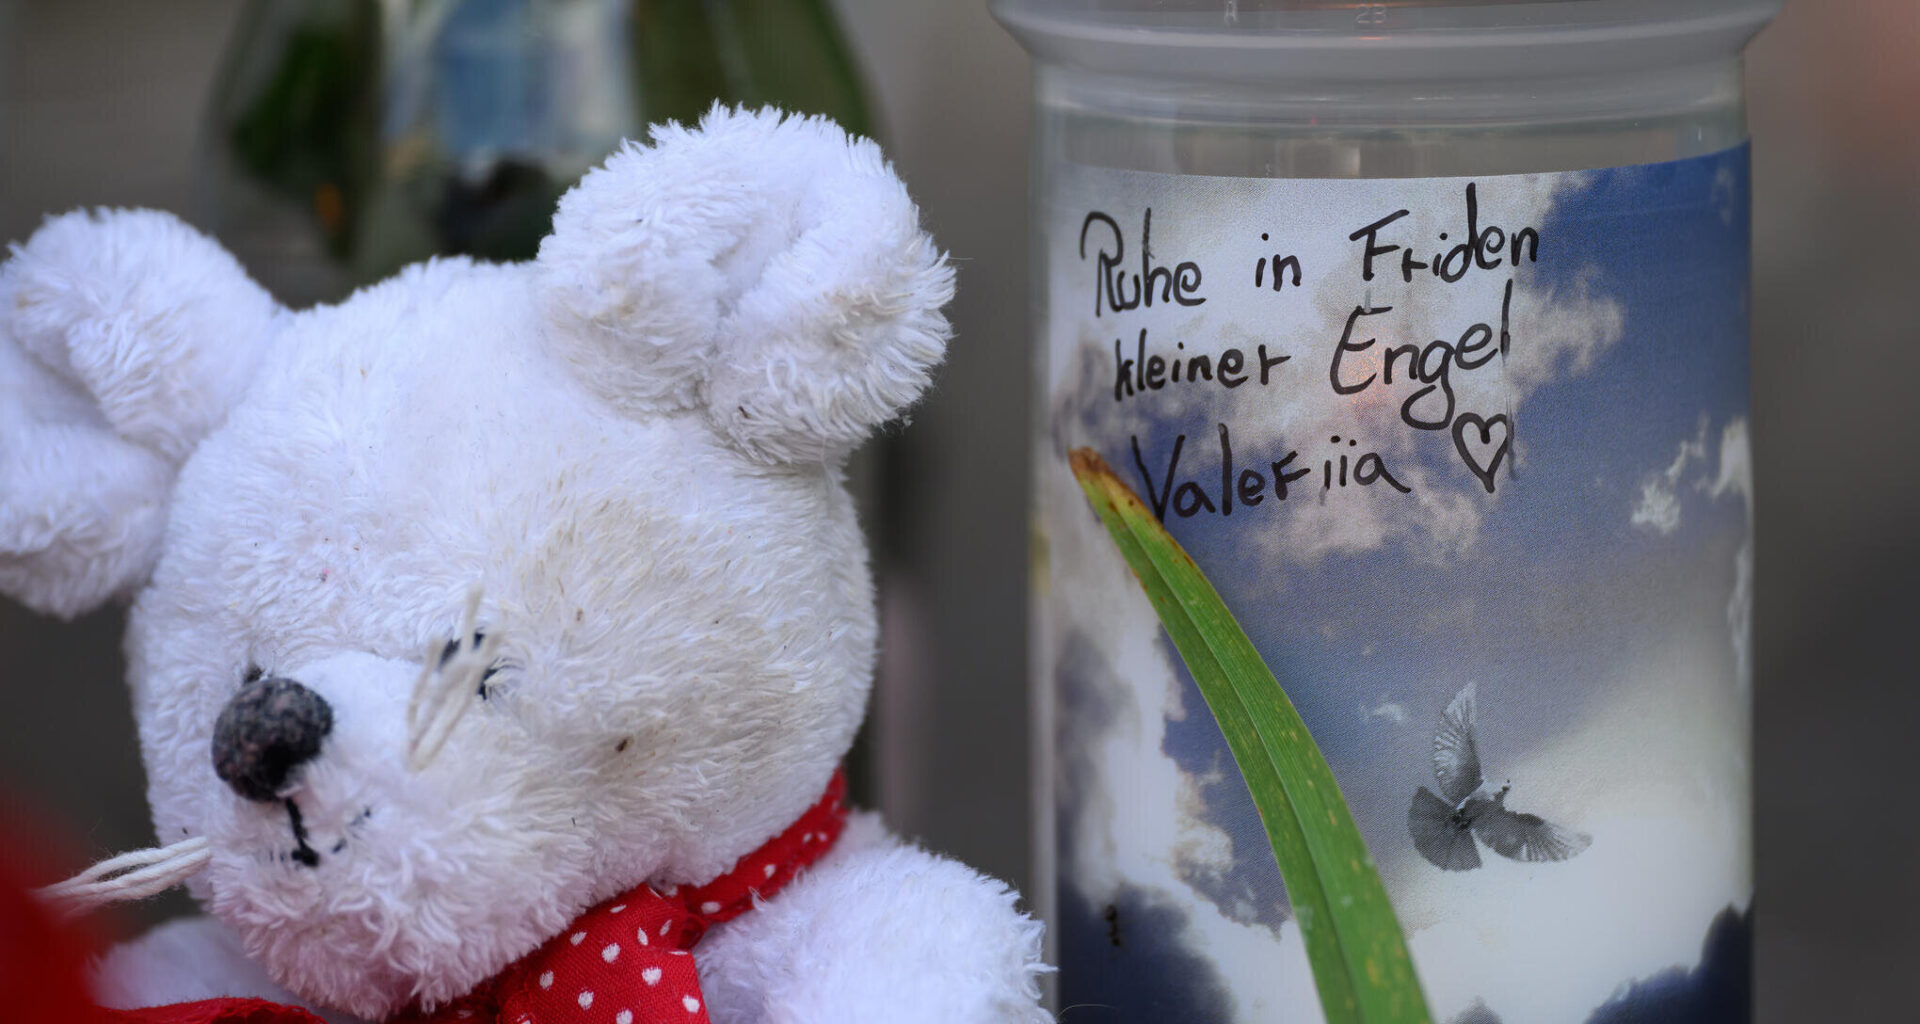 Ruhe in Friden
kleiner Engel
Valeriia ♡